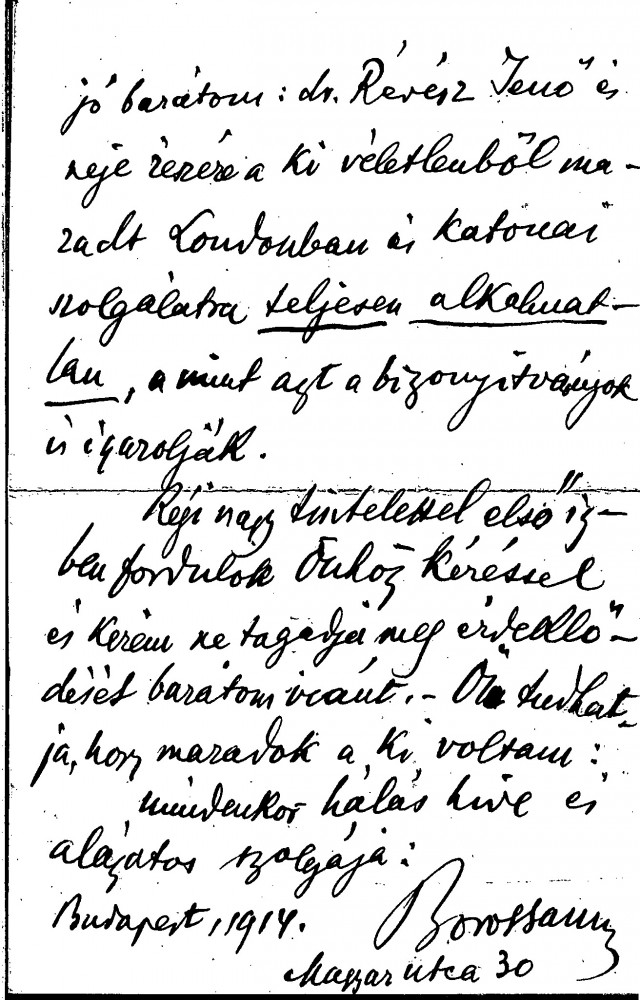 jó barátom: dr. Révész Jenő és
neje részére a ki véletlenből ma-
radt Londonban és katonai
szolgálatra teljesen alkalmat-
lan, a mint azt a bizonyitványok
is igazolják.
Régi nagy tisztelettel első iz-
ben fordulok Önhöz kéréssel
és kérem ne tagadja meg érdeklő-
dését barátom iránt. - Ön tudhat-
ja, hogy maradok a ki voltam:
mindenkor hálás hive és
alázatos szolgája:
Budapest, 1914.
Magyar utca 30